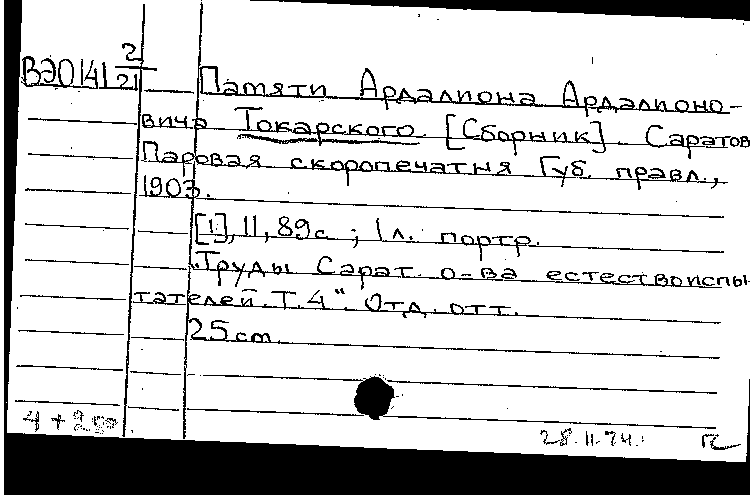 ВЭ0141 2/21
Памяти Ардалиона Ардалионо-
вича Токарского [Сборник]. Саратов
Паровая скоропечатня Губ. правл.,
1903.
[1], 11, 89 с ; 1 л. портр.
"Труды Сарат. о-ва естествоиспы
тателей. Т. 4". Отд. отт.
25 cm.
28.11.74.